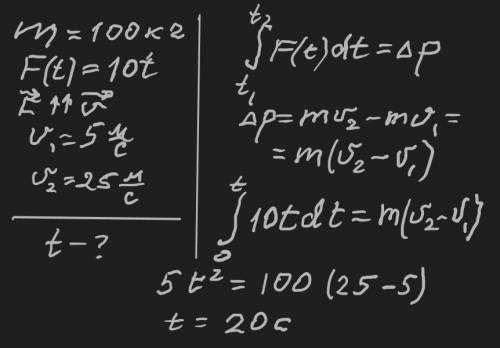 m = 100 кг
F(t) = 10t
F⃗ ↑↑ v⃗
v₁ = 5 м/с
v₂ = 25 м/с
t - ?
∫_{t₁}^{t₂} F(t)dt = Δp
Δp = mv₂ - mv₁ =
= m(v₂ - v₁)
∫₀ᵗ 10tdt = m(v₂ - v₁)
5t² = 100 (25 - 5)
t = 20с